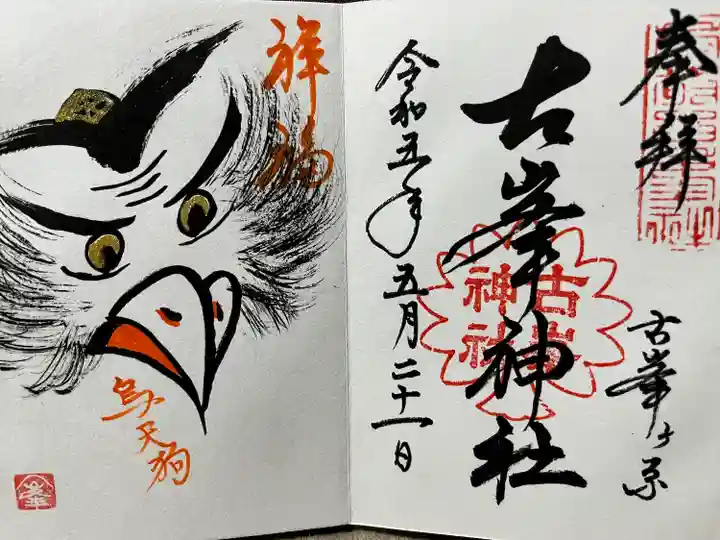 奉拝
古峯ヶ原
古峯神社
古峯
神社
令和五年五月二十一日
祥福
烏天狗